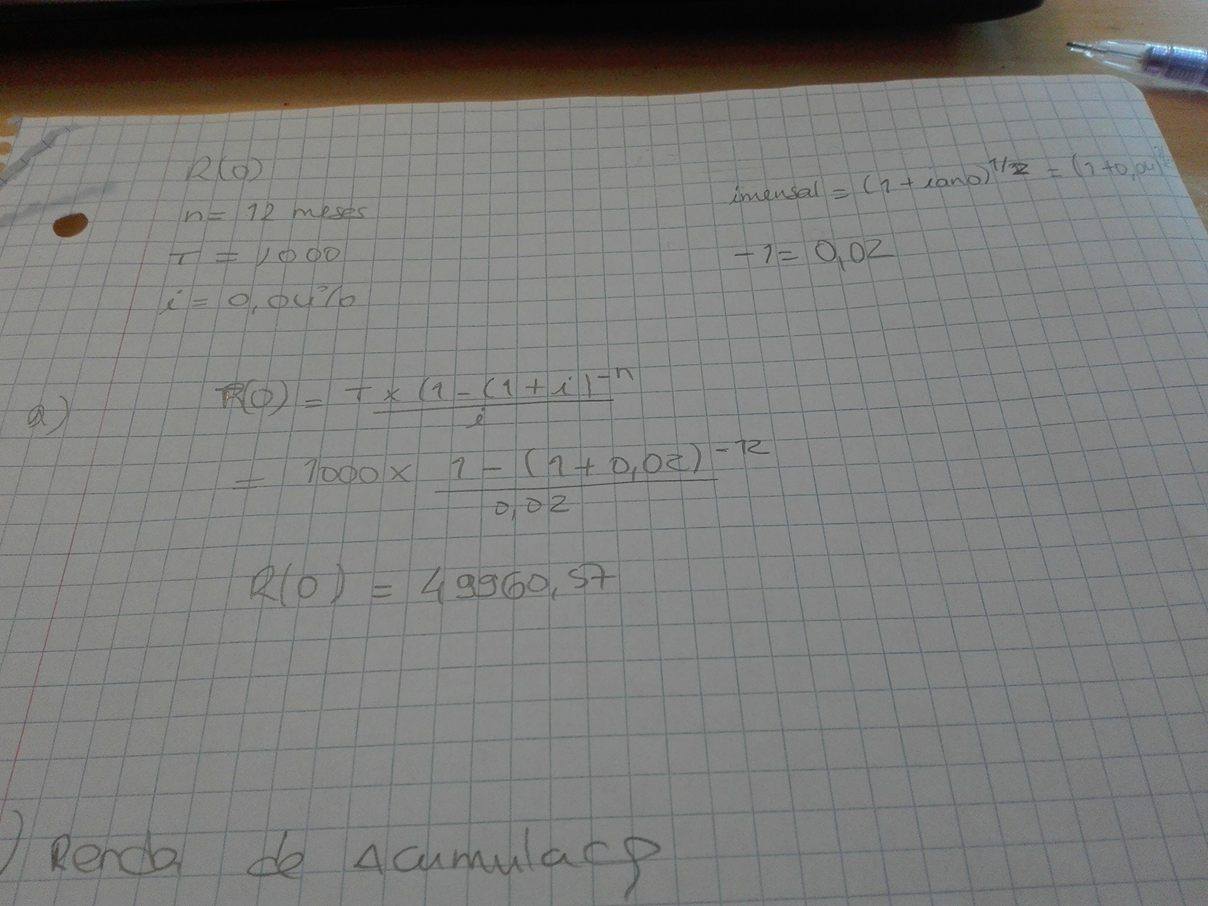 R(0)
n= 12 meses
T = 1000
i = 0,04%
imensal = (1+iano)^1/2 = (1+0,04)
-1= 0,02
a)
R(0) = T × (1 - (1+i)^-n
i
= 1000 × 1 - (1+0,02)^-12
0,02
R(0) = 49960,57
) Renda de Acumulaçp